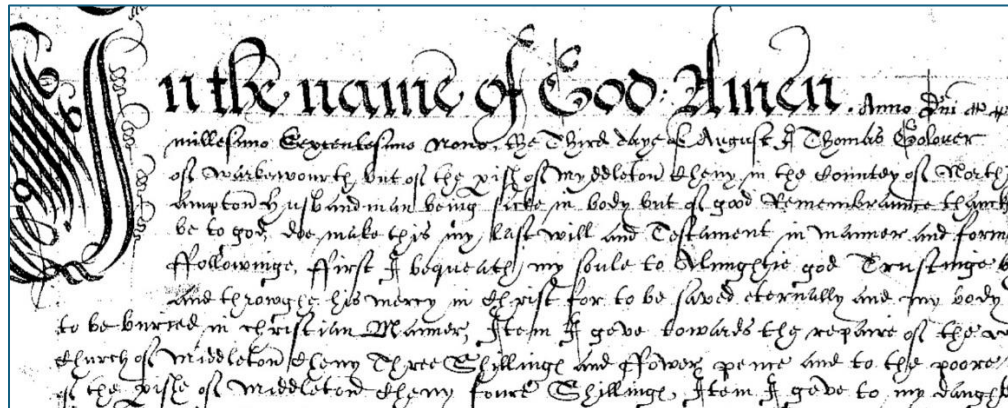 In the name of God: Amen. Anno Dni
millesimo Sexcentesimo nono, the Third daye of August I Thomas
of Warkewourth but of the pish of Myddleton Cheny in the Countey of North
ampton Husbandman being sicke in body but of good Remembraunce thanck
be to god, doe make this my last will and Testament in manner and forme
ffollowinge, ffirst I bequeath my soule to Almightie god Trustinge
and throwghe his mercy in Christ for to be saved eternally and my body
to be buried in christian Manner, Item I geve towards the repaire of the
Church of Middleton Cheny Three Shillings and ffower pence and to the poore
of the pishe of Middleton Cheny foure Shillings, Item I geve to my daught